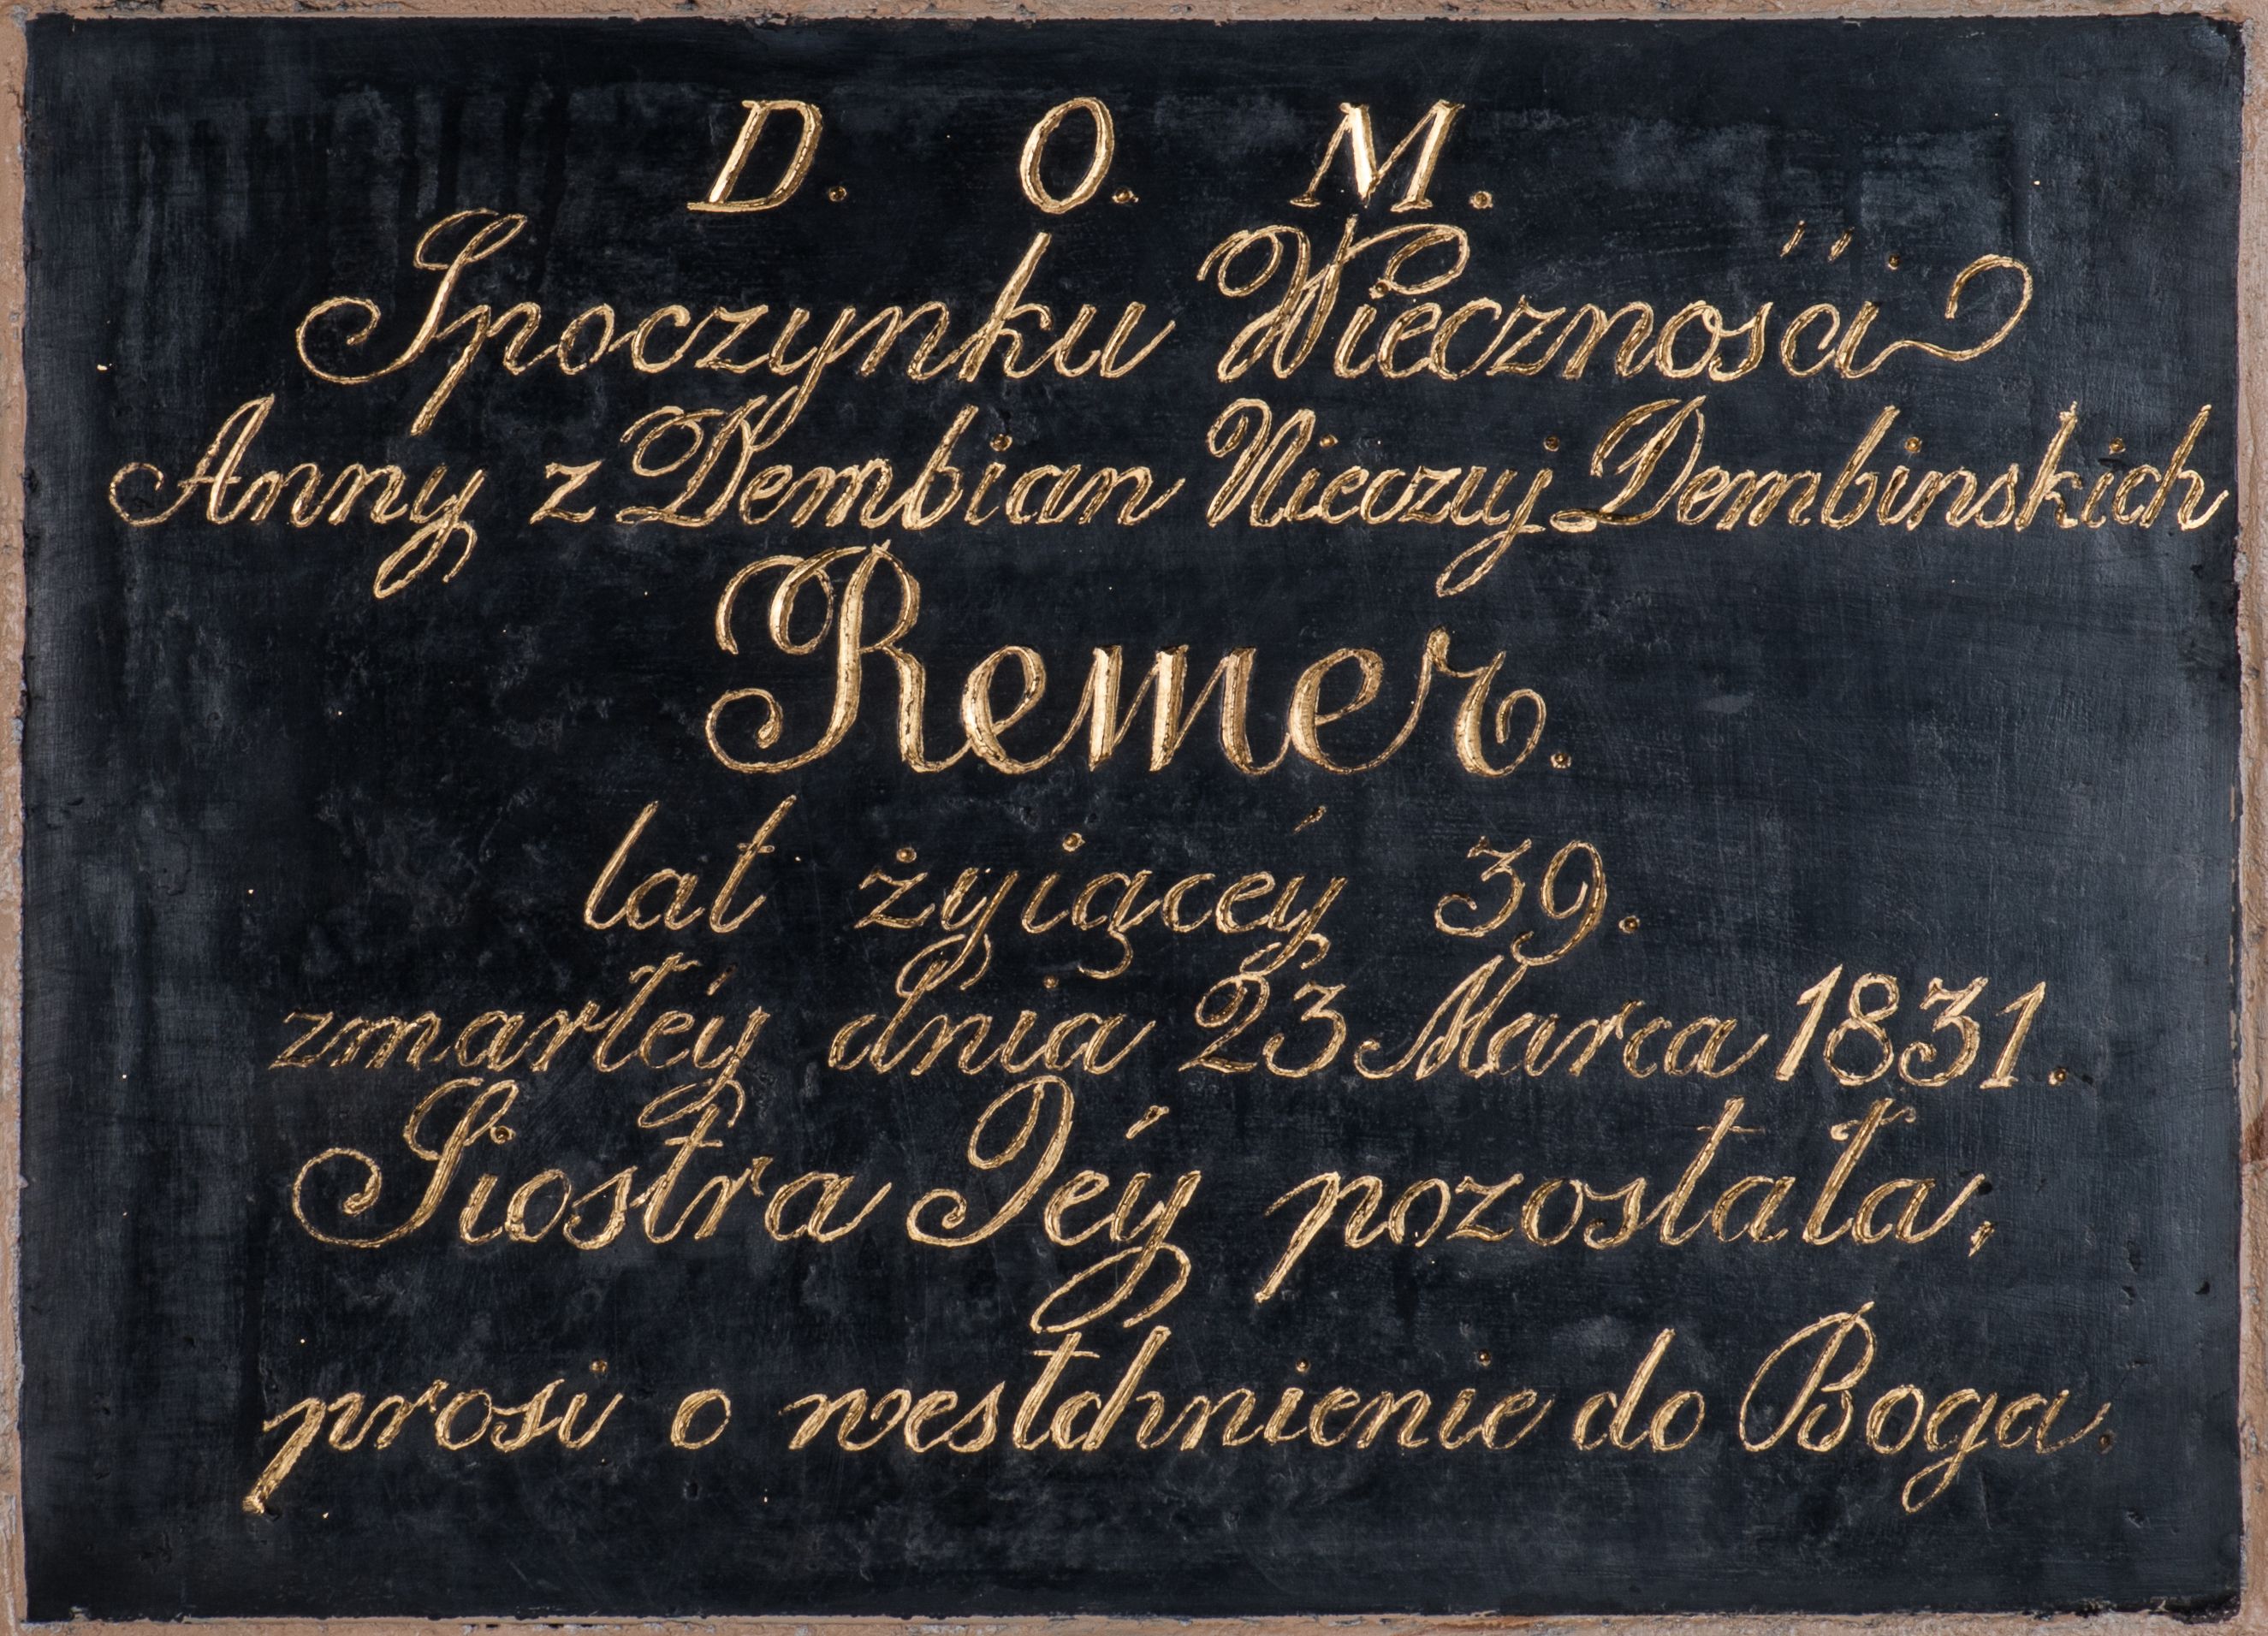 D. O. M.
Spoczynku Wieczności
Anny z Dembian Nieczuj Dembinskich
Remer.
lat żyiącéy 39.
zmarłéy dnia 23 Marca 1831.
Siostra Jéy pozostała,
prosi o westchnienie do Boga.